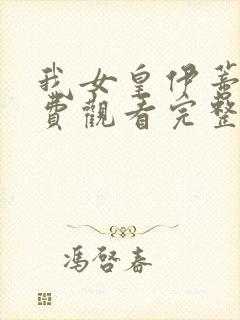 我女皇伊蕾
費觀看完整
馮啓春